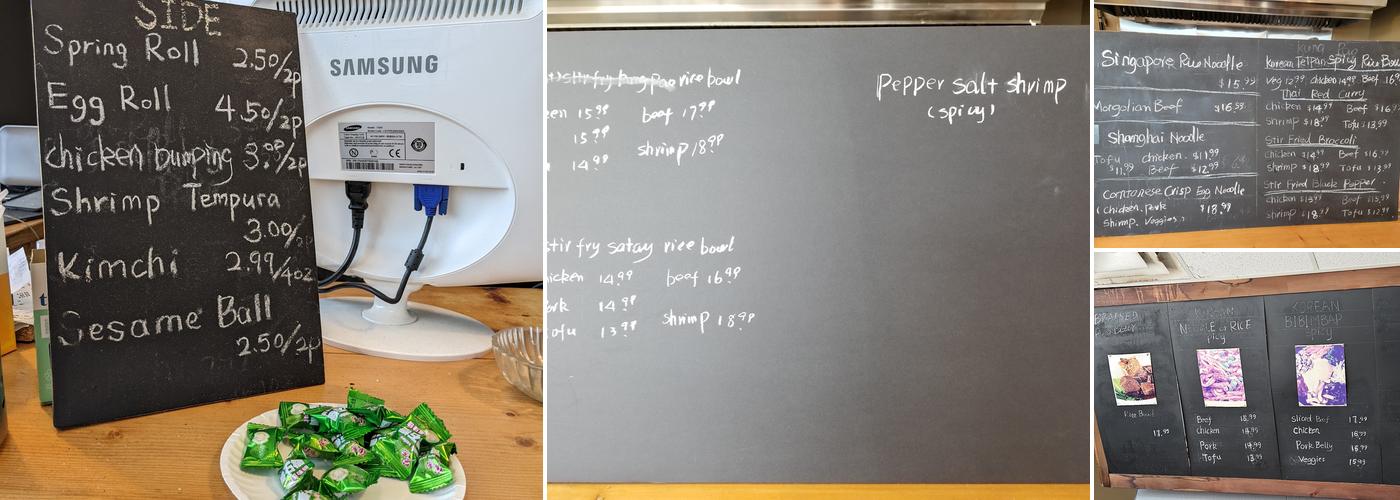 SIDE
Spring Roll 2.50/2p
Egg Roll 4.50/2p
chicken Dumping 3.99/2p
Shrimp Tempura
3.00/2p
Kimchi 2.99/4oz
Sesame Ball
2.50/2p
SAMSUNG
stir fry Pang Pao rice bowl
en 15.99 beef 17.99
15.99
shrimp 18.99
14.99
stir fry satay rice bowl
hicken 14.99 beef 16.99
ork 14.99
tofu 13.99 shrimp 18.99
Pepper salt shrimp
(spicy)
Singapore Rice Noodle
$15.99
Mongolian Beef $16.99
Shanghai Noodle
Tofu chicken. $11.99
$11.99 Beef $12.99
Contonese Crisp Egg Noodle
(chicken, pork $18.99
Shrimp. Veggies.)
Korean Teipan Spicy Rice Bowl
Veg 12.99 chicken 14.99 Beef 16.
Thai Red Curry
Chicken $14.99 Beef $16.
Shrimp $18.99 Tofu $13.99
Stir Fried Broccoli
Chicken $14.99 Beef $16.99
Shrimp $18.99 Tofu $13.99
Stir Fried Black Pepper
chicken $13.99 Beef $15.99
shrimp $18.99 Tofu $12.99
BRAISED
Rice Bowl
17.99
KOREAN
NOODLE or RICE
spicy
Beef 18.99
chicken 14.99
Pork 14.99
Tofu 13.99
KOREAN
BIBIMBAP
spicy
sliced Beef 17.99
Chicken 16.99
Pork Belly 15.99
Veggies 15.99